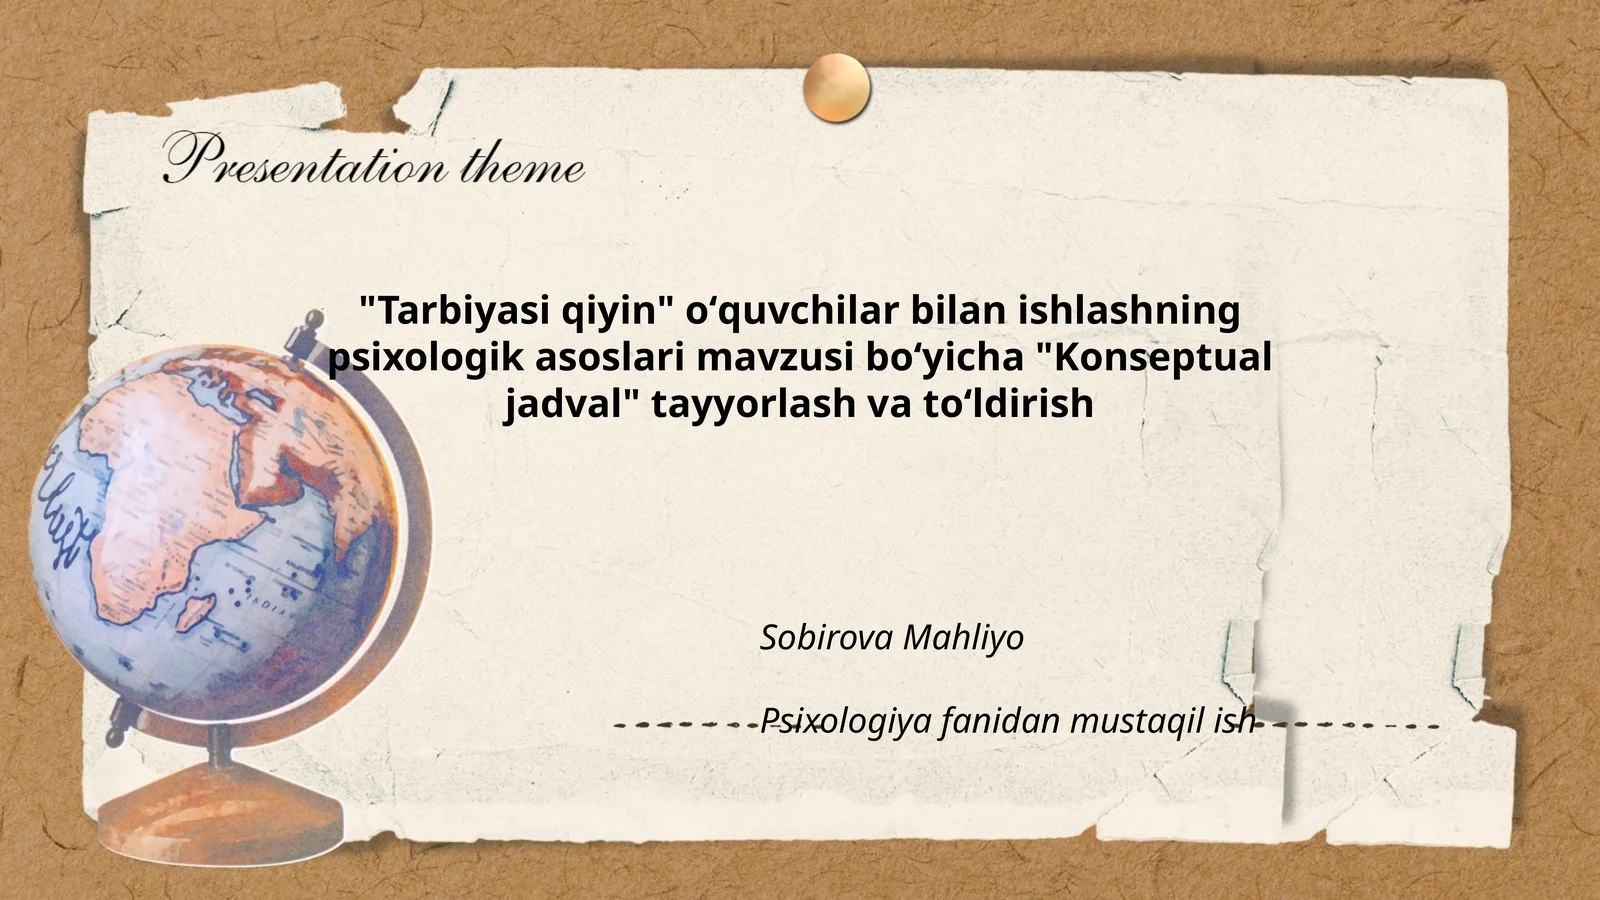 Presentation theme
"Tarbiyasi qiyin" oʻquvchilar bilan ishlashning
psixologik asoslari mavzusi boʻyicha "Konseptual
jadval" tayyorlash va toʻldirish
Sobirova Mahliyo
Psixologiya fanidan mustaqil ish